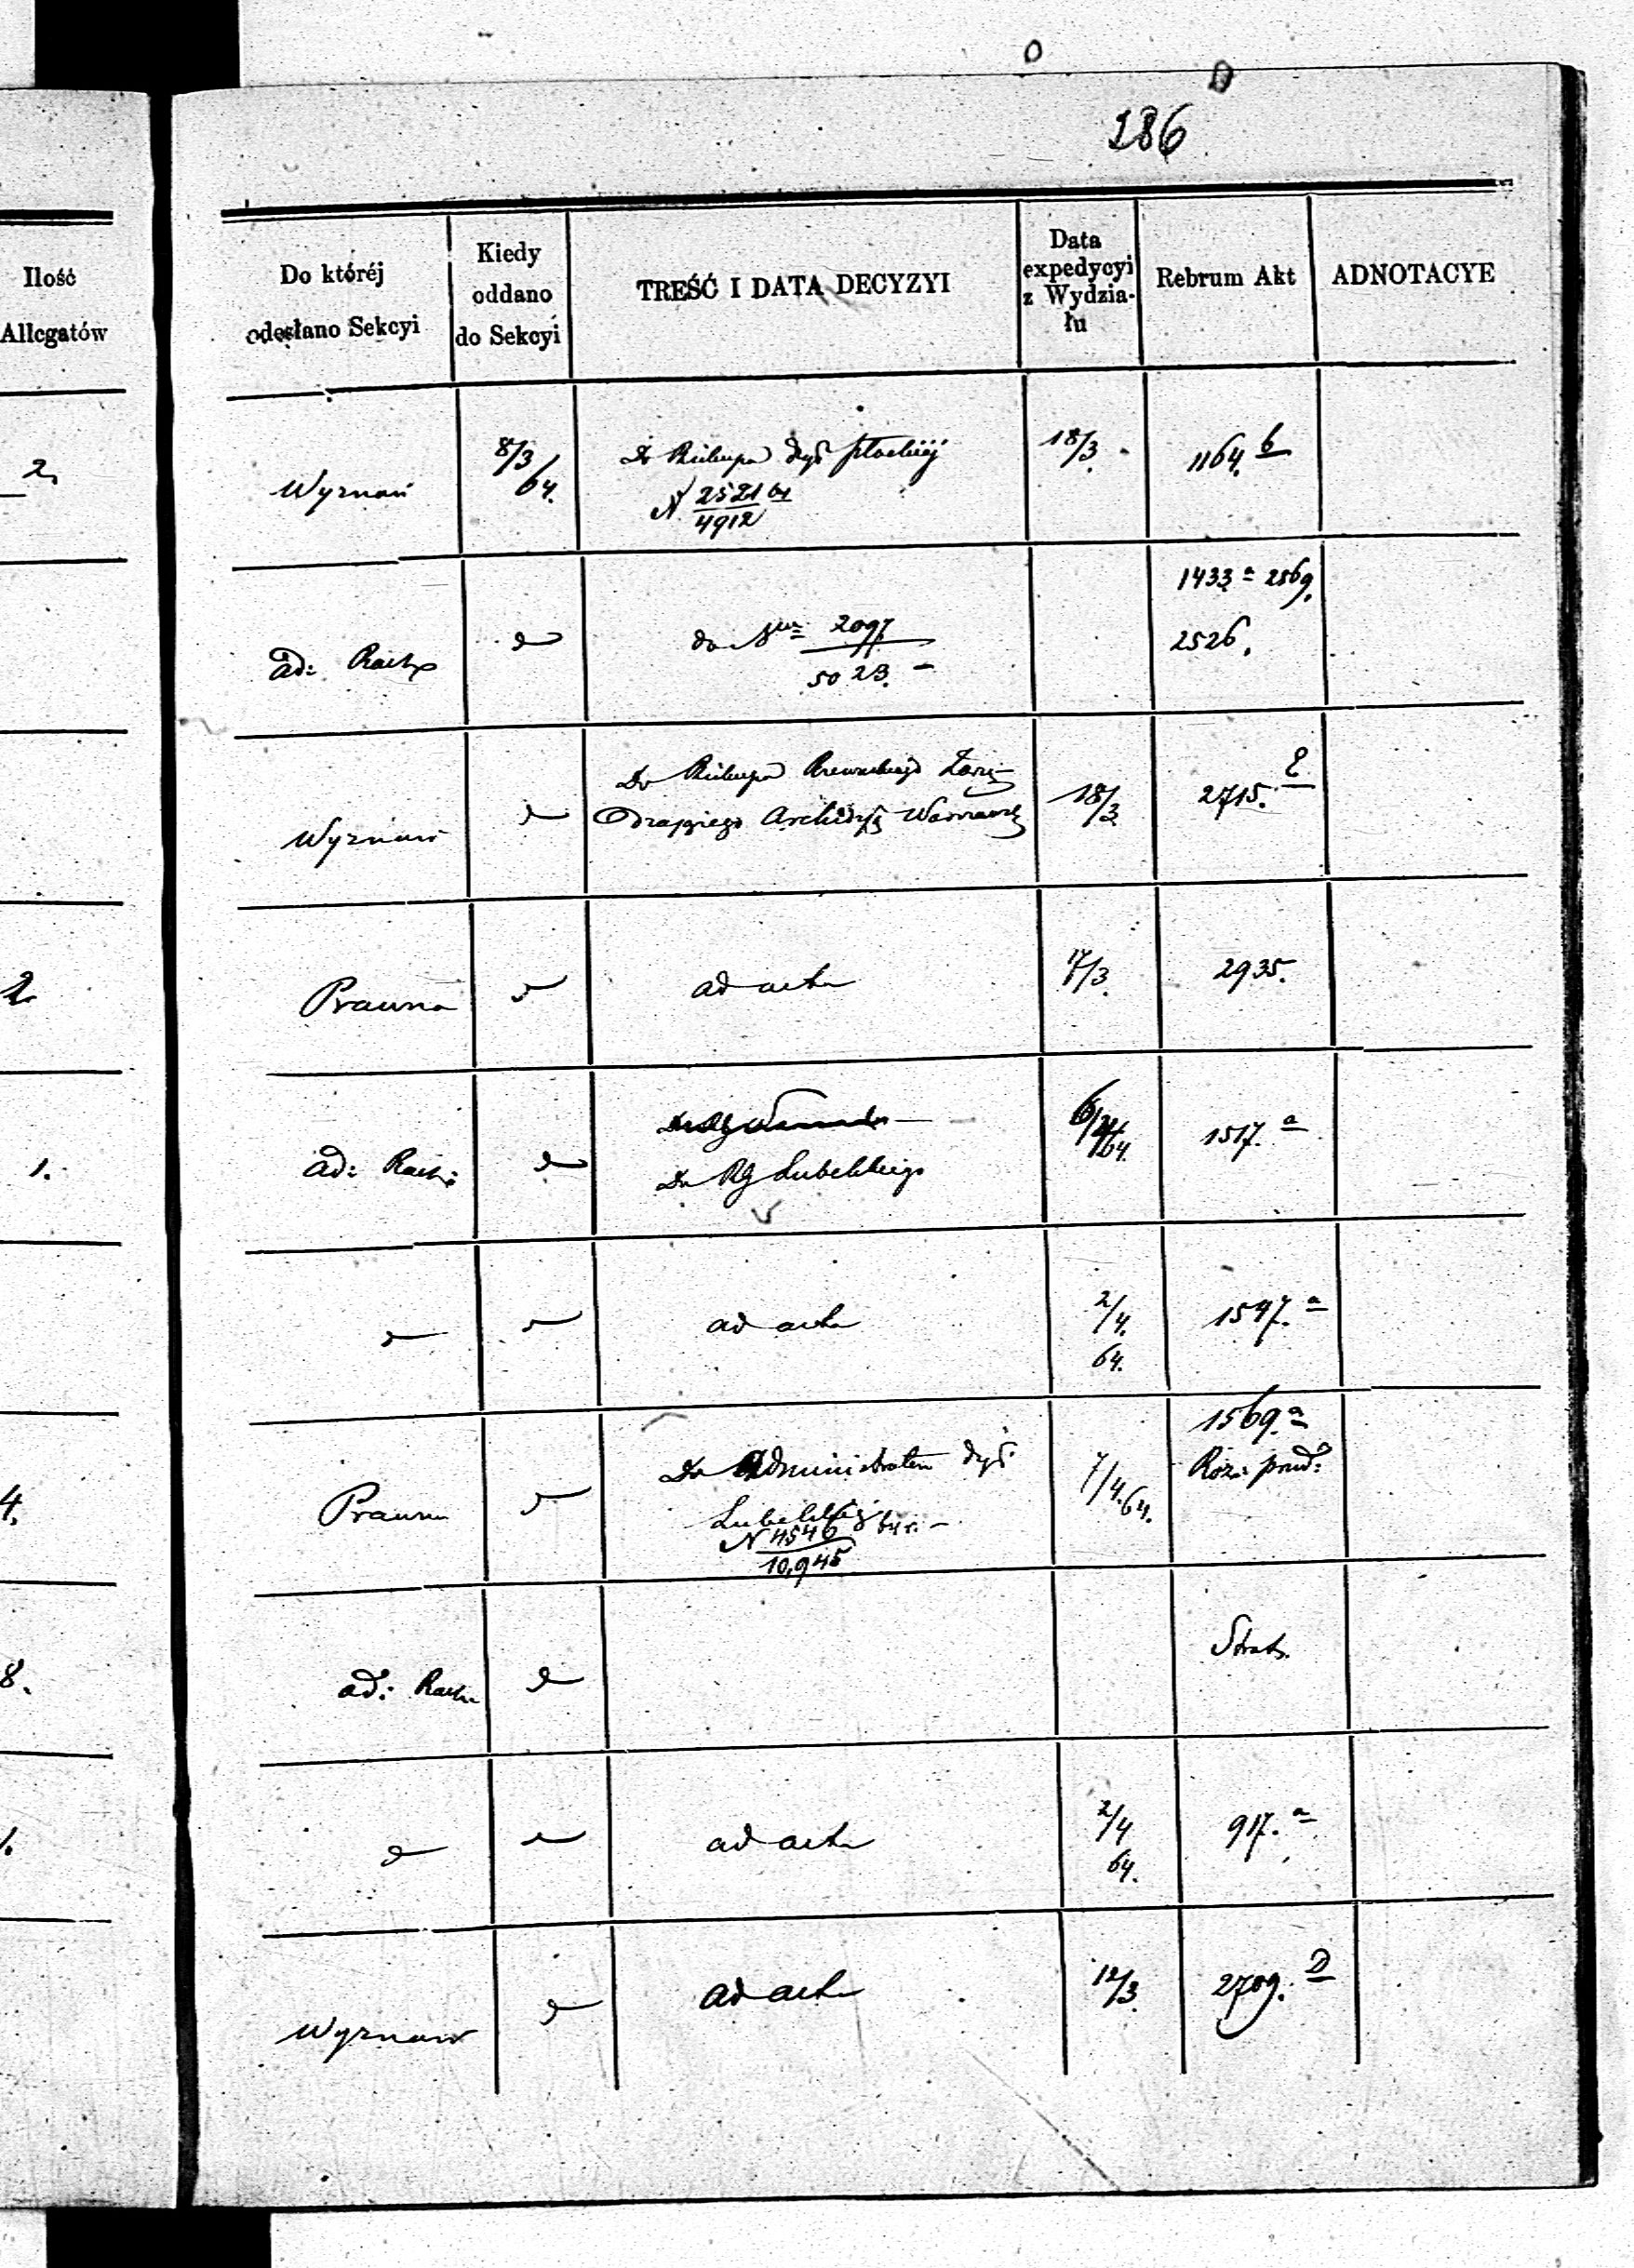 286
Ilość
Allegatów
Do któréj
odesłano Sekcyi
Kiedy
oddano
do Sekcyi
TREŚĆ I DATA DECYZYI
Data
expedycyi
z Wydzia-
łu
Rebrum Akt
ADNOTACYE
2,
Wyznań
8/3
64.
Do Biskupa Dyś Płockiéj
N 2521 64
4912
18/3.
1164. b
ad: Rach
do Nru 2097
5023.
1433 a 2569.
2526.
Wyznań
Do Biskupa Zarzą-
dzającego Archidyś Warszaws
18/3
2715. E
2
Prawna
ad acta
17/3.
2935.
1.
ad: Rach:
Do RG Lubelskiego
6/4 64.
1517. a
ad acta
2/4.
64.
1547. a
4.
Prawna
Do Administratora Dyś
Lubelskiéj
N 4546 64 r.
10,945
7/4.64.
1569. a
Roz: prud:
8.
ad: Rach
Strat.
1.
ad acta
2/4
64.
917. a
Wyznań
ad acta
12/3.
2709. D